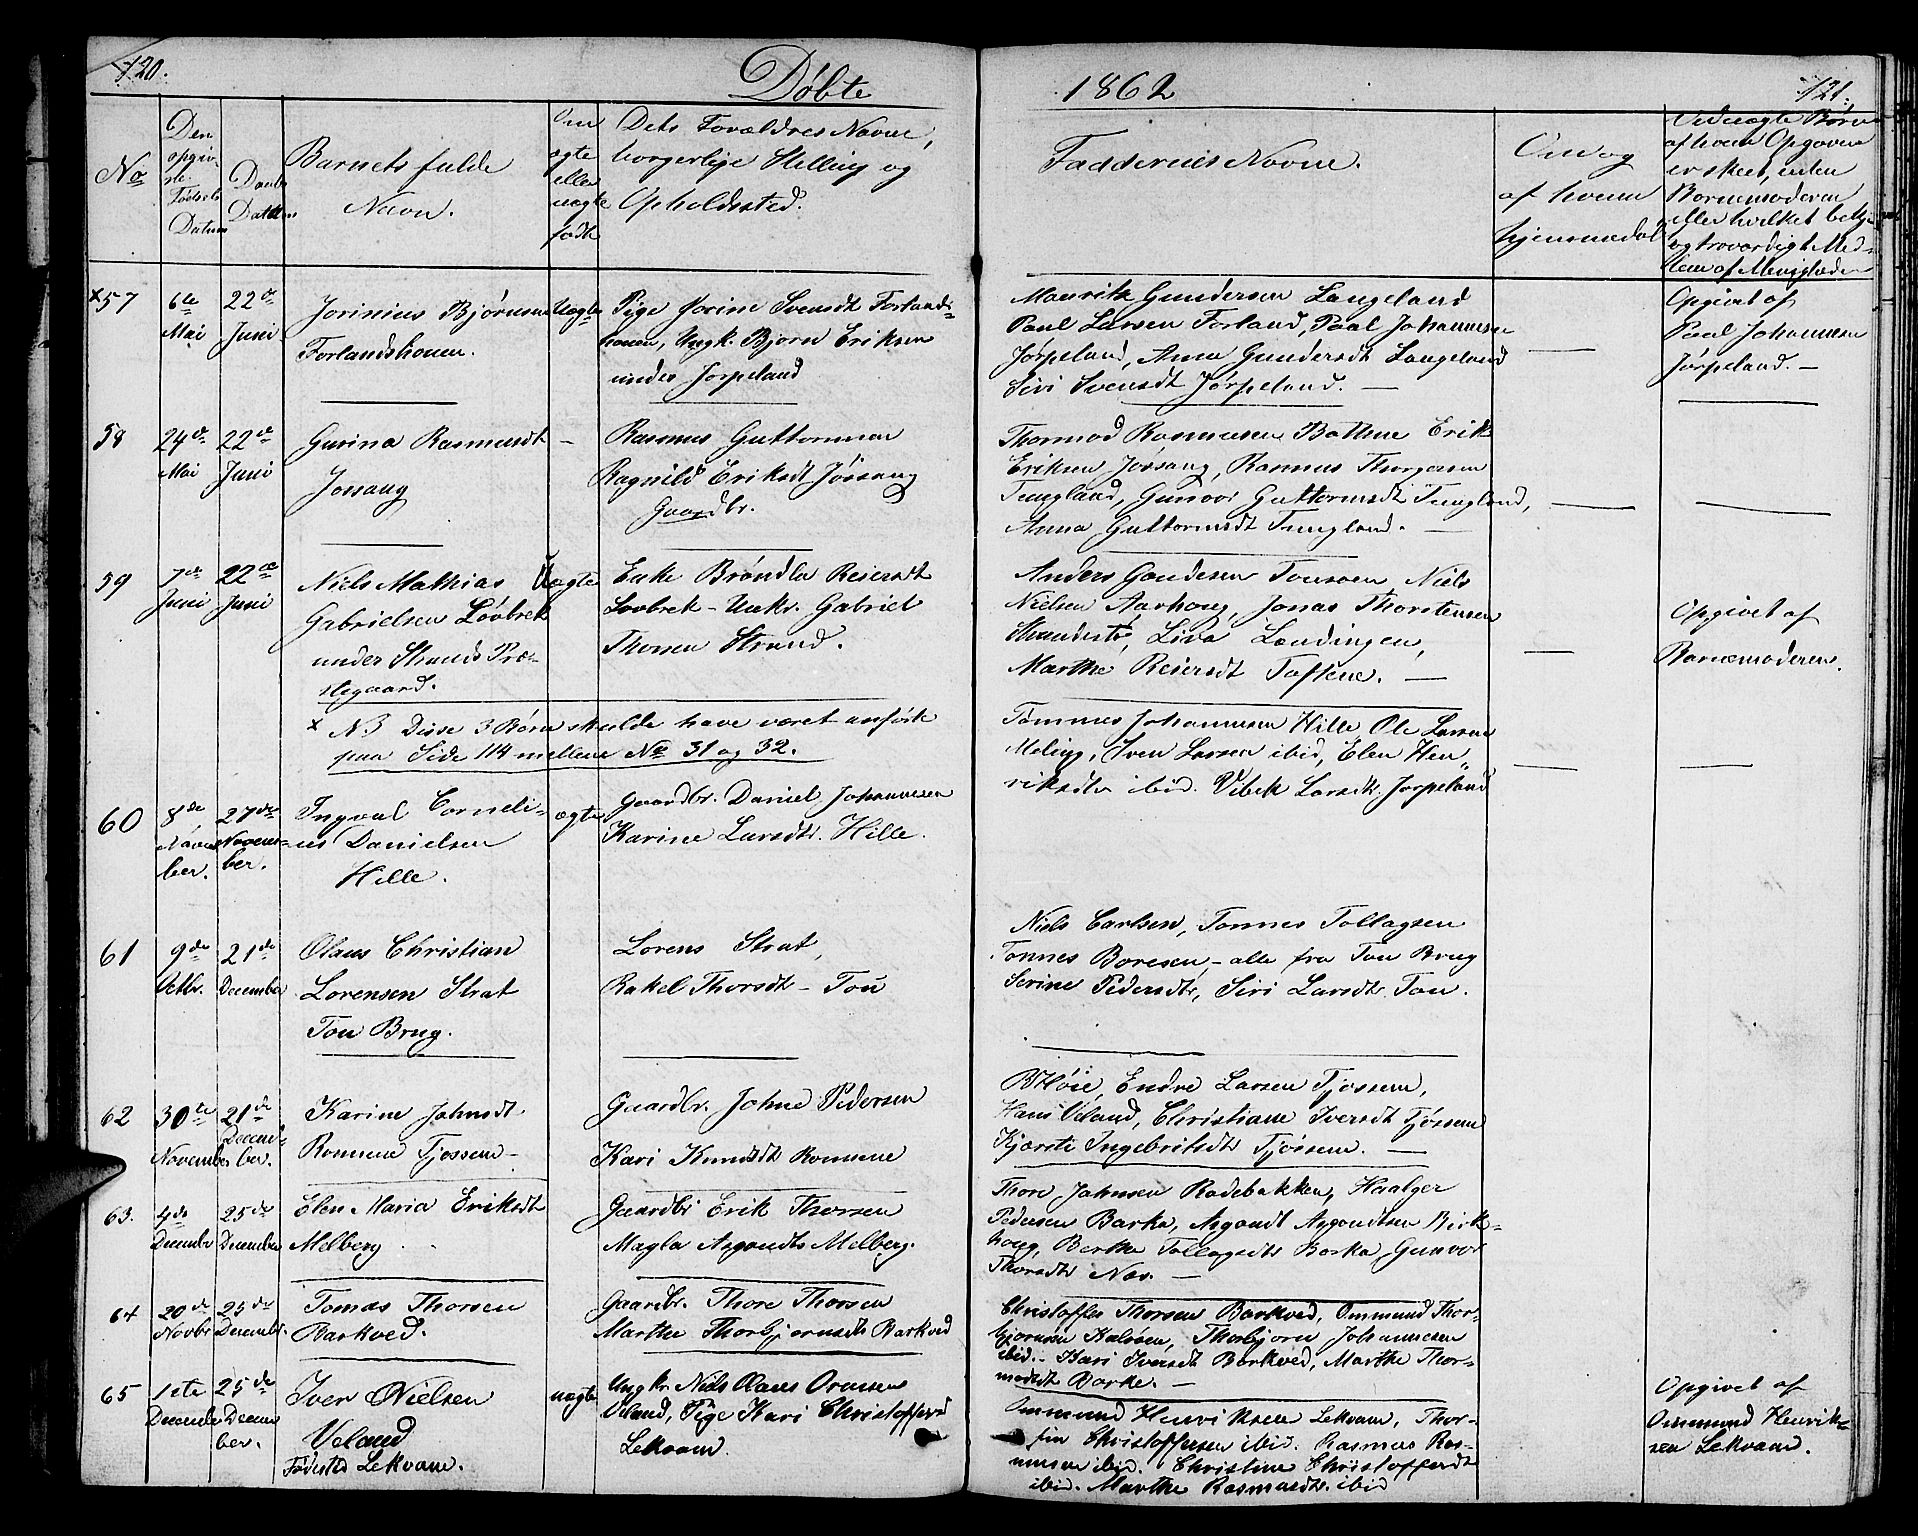 120.
Døbte
1862
121.
No
Den
opgiv
ne
Fødsels
Datum
Daabs
Datum
Barnets fulde
Navn.
Om
ægte
eller
uægte
født
Dets Forældres Navne,
borgerlige Stilling og
Opholdssted.
Faddernes Navne.
Om og
af hvem
hjemmedøbt
Ved uægte Børn
af hvem Opgaven
er skeet, enten
Barnemoderen
eller hvilket
og troværdigt Med-
lem af Menigheden
×57
6te
Mai
22de
Juni
Jorinius Bjørnsen
Forlandshouen.
Uægte
Pige Jorine Svensdt Forlands-
houen, Ungk. Bjørn Eriksen
under Jørpeland
Mauritz Gundersen Langeland
Paul Larsen Forland, Paal Johannesen
Jørpeland, Anna Gundersdt Langeland
Siri Svensdt Jørpeland. —
—
Opgivet af
Paal Johannesen
Jørpeland. —
58
24de
Mai
22de
Juni
Gurina Rasmusdt
Jøssang
—
Rasmus Guttormsen
Ragnild Eriksdt Jøssang
Gaardbr.
Thormod Rasmusen Botne Erik
Eriksen Jøssang, Rasmus Thorgersen
Tungland, Gunvor Guttormsdt Tungland,
Anna Guttormsdt Tungland. —
—
—
59
7de
Juni
22de
Juni
Niels Mathias
Gabrielsen Løvbrek
under Strands Præ-
stegaard.
Uægte
Enke Brøndla Reiersdt
Løvbrek - Unkr. Gabriel
Thorsen Strand.
Anders Gaudesen Tousøen Niels
Nielsen Aarhoug, Jonas Thorstensen
Strandestø, Liva Lændingen,
Marthe Reiersdt Toftene. —
—
Opgivet af
Barnemoderen.
× NB Disse 3 Børn skulde have været anført
paa Side 114 mellem No 31 og 32.
60
8de
Novem
ber.
27de
Novem-
ber.
Ingval Corneli-
us Danielsen
Hille.
ægte
Gaardbr. Daniel Johannesen
Karine Larsdtr. Hille.
Tønnes Johannesen Hille, Ole Larsen
Meling, Sven Larsen ibid, Elen Hen-
riksdtr ibid. Vibek Larsdtr. Jørpeland
—
—
61
9de
Octbr.
21de
December
Olaus Christian
Lorensen Strat
Tou Brug.
Lorens Strat,
Rakel Thorsdtr - Tou
Niels Carlsen, Tønnes Tollagsen
Tønnes Boresen - alle fra Tou Brug
Serine Pedersdtr, Siri Larsdtr. Tou.
62
30te
November
21de
Decem-
ber.
Karine Johnsdt.
Romene Tjøssem -
Gaardbr. Johne Pedersen
Kari Knudsdt Romene
B Høie, Endre Larsen Tjøssem,
Hans Veland, Christiane Iversdt Tjøssem
Kjersti Ingebritsdt Tjøssem. —
63.
4de
December
25de
December
Elen Maria Eriksdt
Melberg
Gaardbr Erik Thorsen
Magla Asgautsdtr Melberg.
Thore Johnsen Rødebakken, Haalger
Pedersen Barka, Asgaudt Asgaudtsen Birk-
houg, Berthe Tollagsdt Barka, Gunvor
Thorsdtr Næs. —
64
20de
Novbr
25de
Decembr.
Tomas Thorsen
Barkved.
Gaardbr. Thore Thorsen
Marthe Thorbjørnsdtr Barkved
Christoffer Thorsen Barkved, Ommund Thor-
bjørnsen Kalvøen, Thorbjørn Johannesen
ibid. - Kari Iversdt Barkved, Marthe Thor-
modsdt Barke. —
65
1ste
Decembe
25de
Decem
ber.
Iver Nielsen
Veland
Fødested Lekvam.
uægte
Ungkr. Niels Olaus Ormsen
Veland, Pige Kari Christoffersd
Lekvam
Ommund Henriksen Lekvam, Thor-
fin Christoffersen ibid. Rasmus Ras-
mussen ibid. Christine Christoffersdt
ibid. Marthe Rasmusdtr. ibid
Opgivet af
Ommund Henrik-
sen Lekvam.